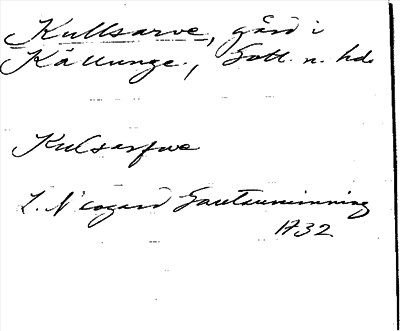 Kullsarve, gård i
Källunge, Gotl. n. hd.
Kulsarfwe
L. Neogard Gautauminning
1732